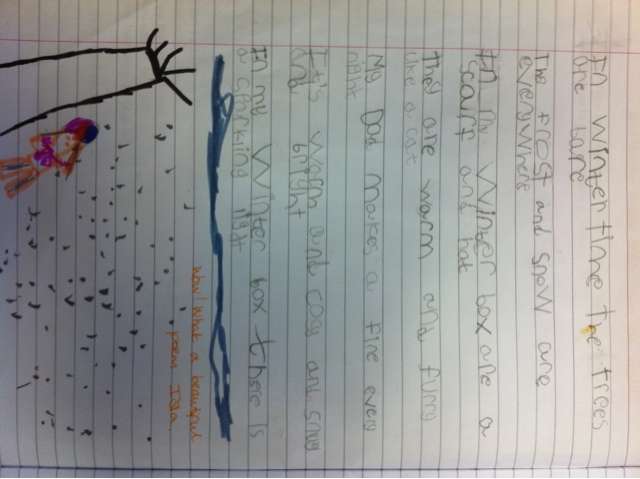 In winter time the trees
are bare
The frost and snow are
everywhere
In my winter box are a
scarf and hat
They are warm and furry
like a cat
My Dad makes a fire every
night
It's warm and cosy and snug
and bright
In my winter box there is
a sparkling light
Wow! What a beautiful
poem Isla.